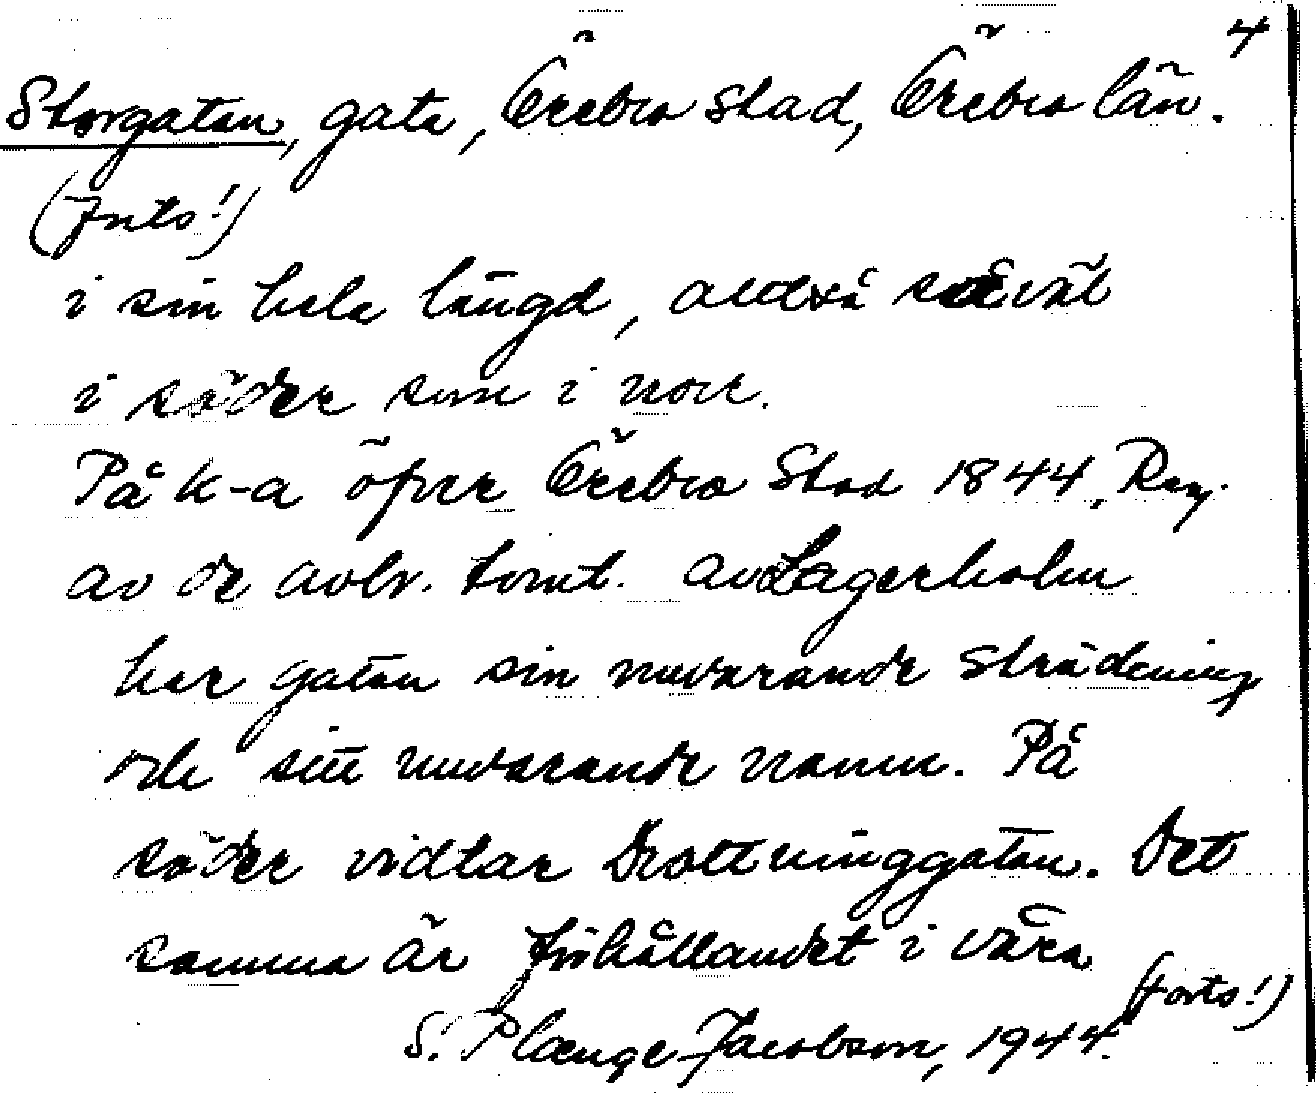 4
Storgatan, gata, Örebro stad, Örebro län.
(forts!)
i sin hela längd, alltså såväl
i söder som i norr.
På k-a öfver Örebro Stad 1844, Reg.
av de avbr. tomt. av Lagerholm
har gatan sin nuvarande sträckning
och sitt nuvarande namn. På
söder vidtar Drottninggatan. Det
samma är förhållandet i våra
(forts!)
S. Plænge-Jacobson, 1944.